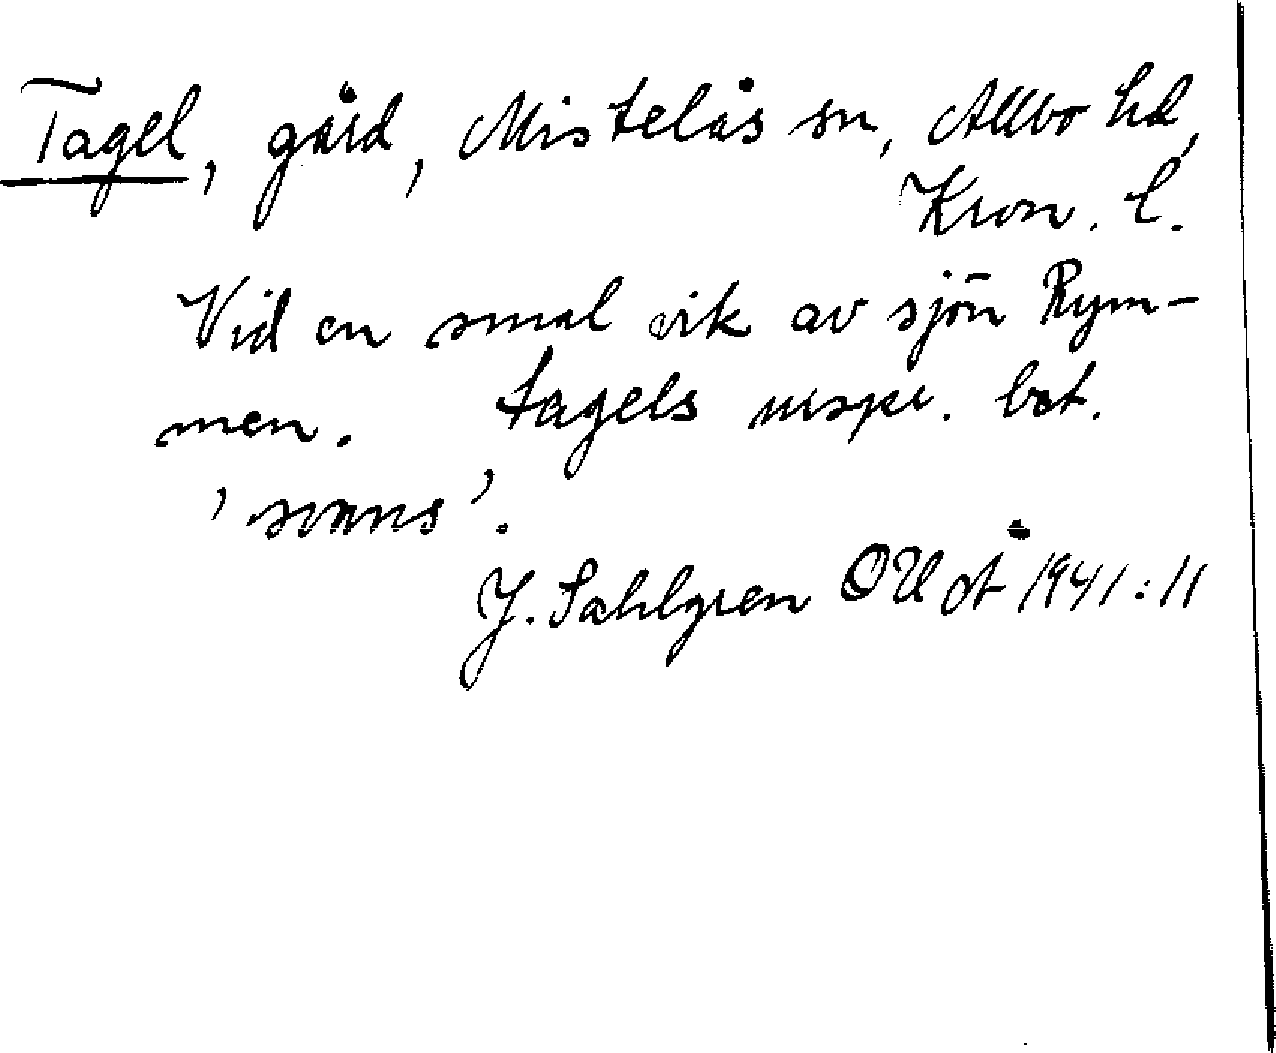 Tagel, gård, Mistelås sn, Allbo hd,
Kron. l.
Vid en smal vik av sjön Rym-
men. tagels urspr. bet.
'svans'.
J. Sahlgren OUoÅ 1941:11